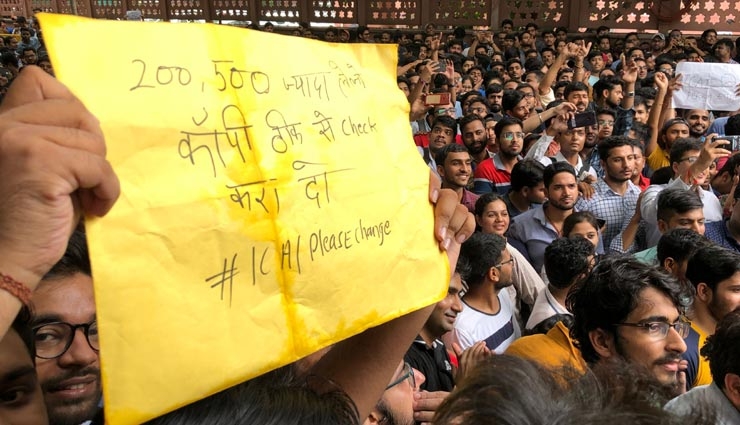 200,500 ज्यादा लेलो
कॉपी ठीक से check
करा दो
#ICAIPleasechange